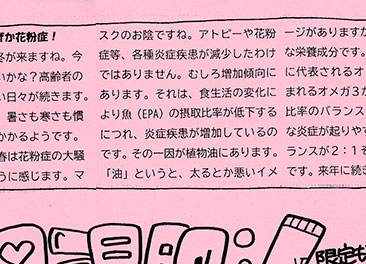 ずか花粉症！
冬が来ますね。今
いかな？高齢者の
い日々が続きます。
暑さも寒さも慣
かかるようです。
春は花粉症の大騒
うに感じます。マ
スクのお陰ですね。アトピーや花粉
症等、各種炎症疾患が減少したわけ
ではありません。むしろ増加傾向に
あります。それは、食生活の変化に
より魚（EPA）の摂取比率が低下する
につれ、炎症疾患が増加しているの
です。その一因が植物油にあります。
「油」というと、太るとか悪いイメ
ージがありますが
な栄養成分です。
に代表されるオ
まれるオメガ３か
比率のバランス
な炎症が起りやす
ランスが２：１そ
です。来年に続き
限定も